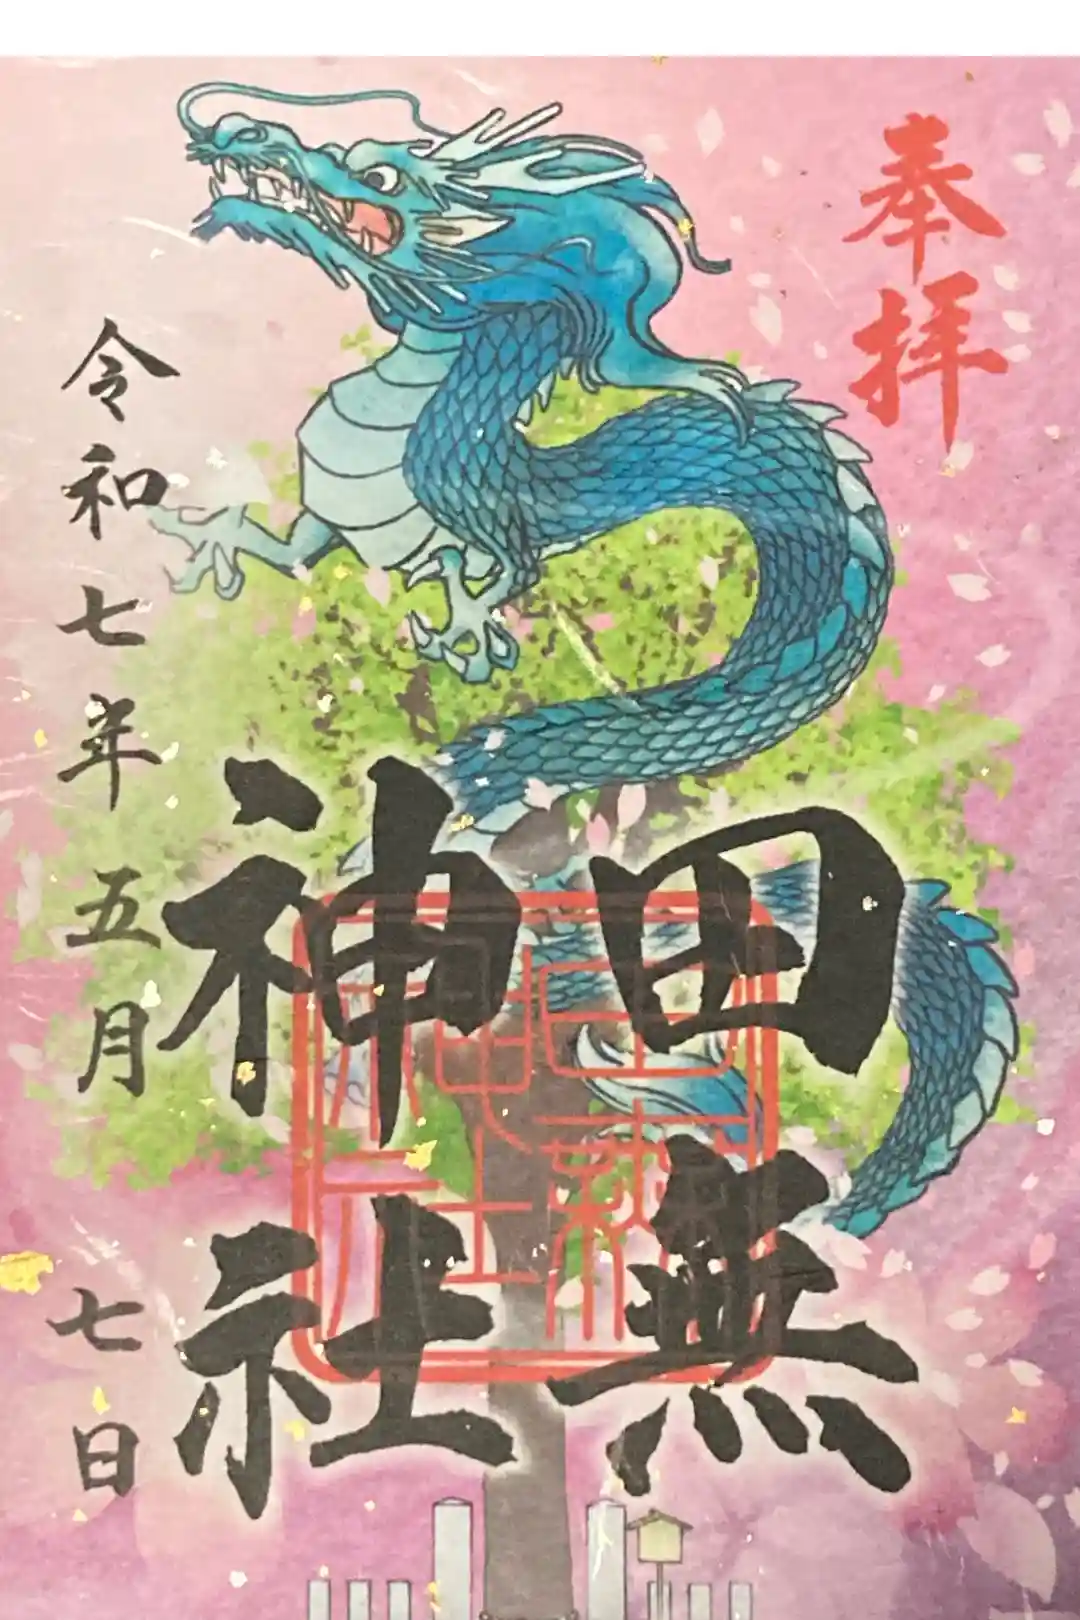 奉拝
田無
神社
令和七年五月七日
田無
神社